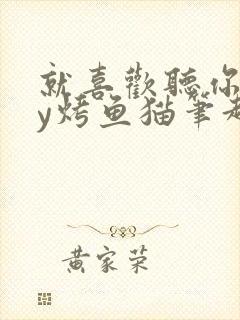 就喜歡聽你
y烤鱼猫筆趣
黄家荣